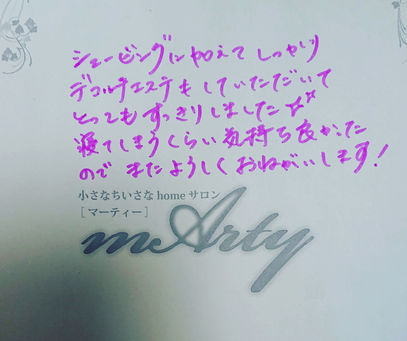 シェービングに加えて しっかり
デコルテエステも していただいて
とってもすっきりしました☆☆
寝てしまうくらい気持ち良かった
ので またよろしくおねがいします!
小さなちいさな home サロン
[マーティー]
mArty